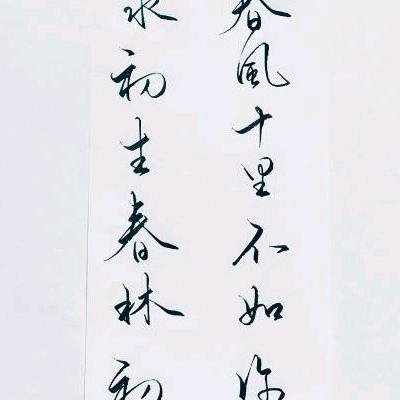 春風十里不如你
水初生春林初